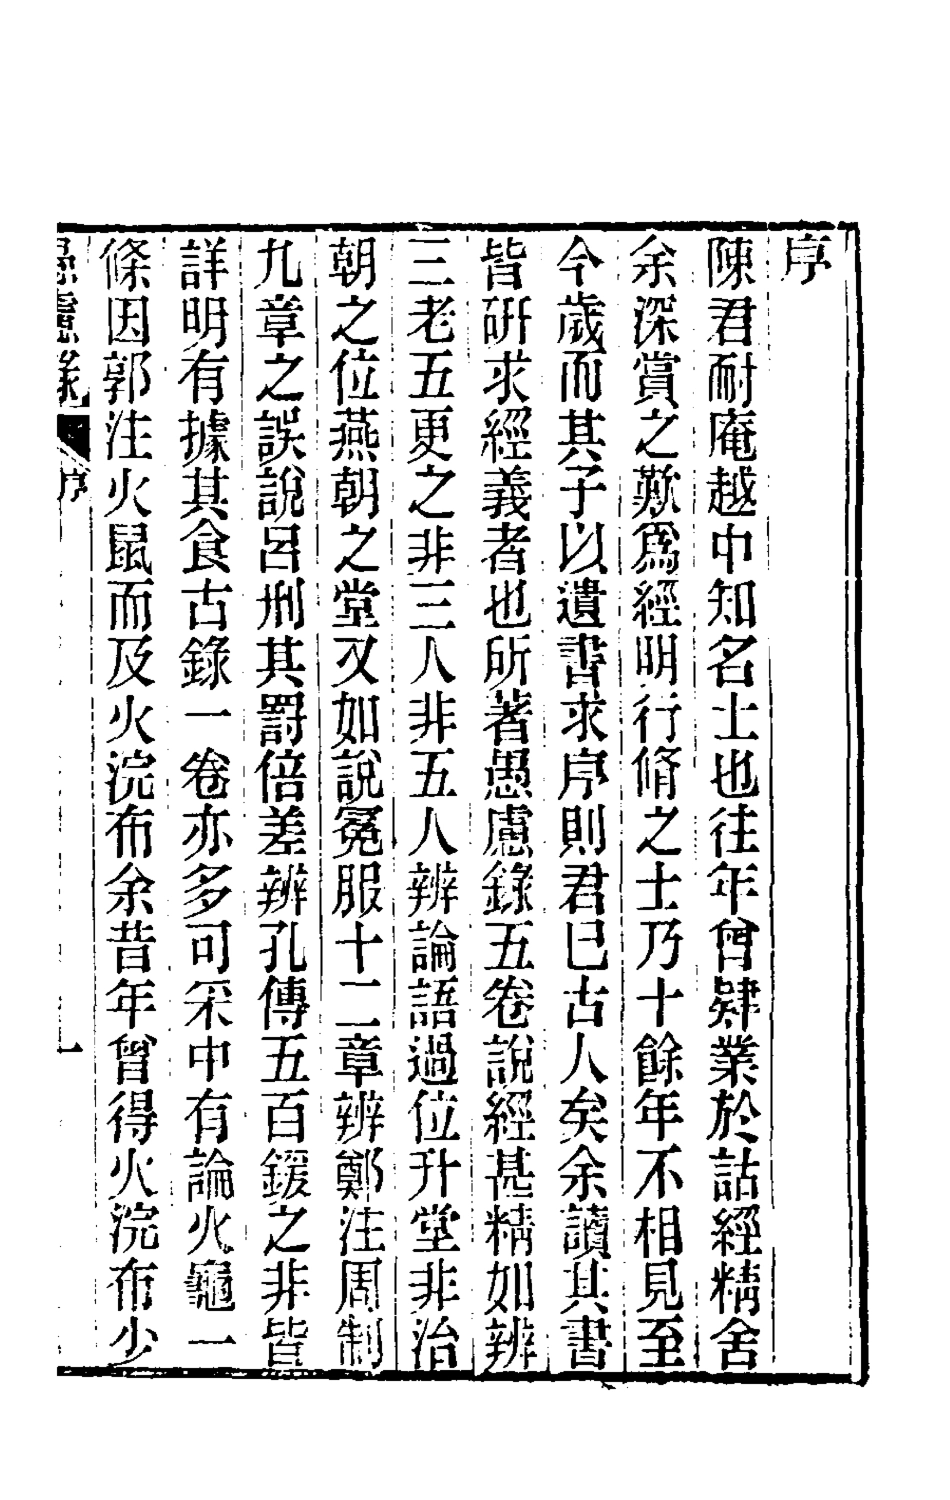 序
陳君耐庵越中知名士也往年曾肄業於詁經精舍
余深賞之歎爲經明行脩之士乃十餘年不相見至
今歲而其子以遺書求序則君已古人矣余讀其書
皆研求經義者也所著愚慮錄五卷說經甚精如辨
三老五更之非三人非五人辨論語過位升堂非治
朝之位燕朝之堂又如說冕服十二章辨鄭注周制
九章之誤說呂刑其罰倍差辨孔傳五百鍰之非皆
詳明有據其食古錄一卷亦多可采中有論火龜一
條因郭注火鼠而及火浣布余昔年曾得火浣布少
愚慮錄 序 一